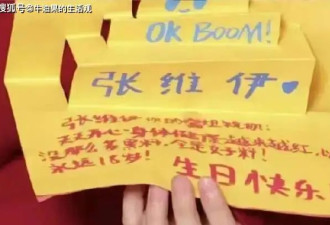 搜狐号@牛油果的生活观
OK BOOM!
张维伊
张维伊你的
天天开心~身体健康 越来越红,
没那么多黑料,全是好料!
永远18岁!
生日快乐